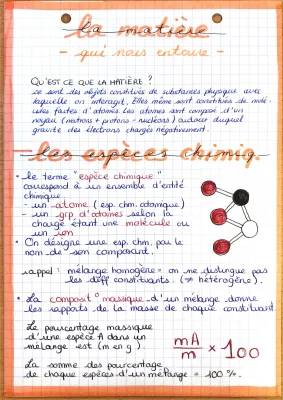 la matière
- qui nous entoure -
QU'EST CE QUE LA MATIÈRE ?
ce sont des objets constitués de substances physique avec
laquelle on interagit. Elles même sont constituées de molé-
cules faites d'atomes. Les atomes sont composé d'un
noyau (neutrons + protons = nucléons) autour duquel
gravite des électrons chargés négativement.
- les espèces chimiq.
• le terme "espèce chimique"
correspond à un ensemble d'entité
chimique :
- un atome (esp. chim. atomique)
- un grp. d'atomes selon la
charge étant une molécule ou
un ion
• On désigne une esp. chim. par le
nom de son composant.
rappel : mélange homogène = on ne distingue pas
les diff constituants. (≠ hétérogène).
• La composit° massique d'un mélange donne
les rapports de la masse de chaque constituant.
Le pourcentage massique
d'une espèce A dans un
mélange est (m en g) :
mA
m
× 100
La somme des pourcentage
de chaque espèces d'un mélange = 100 %.